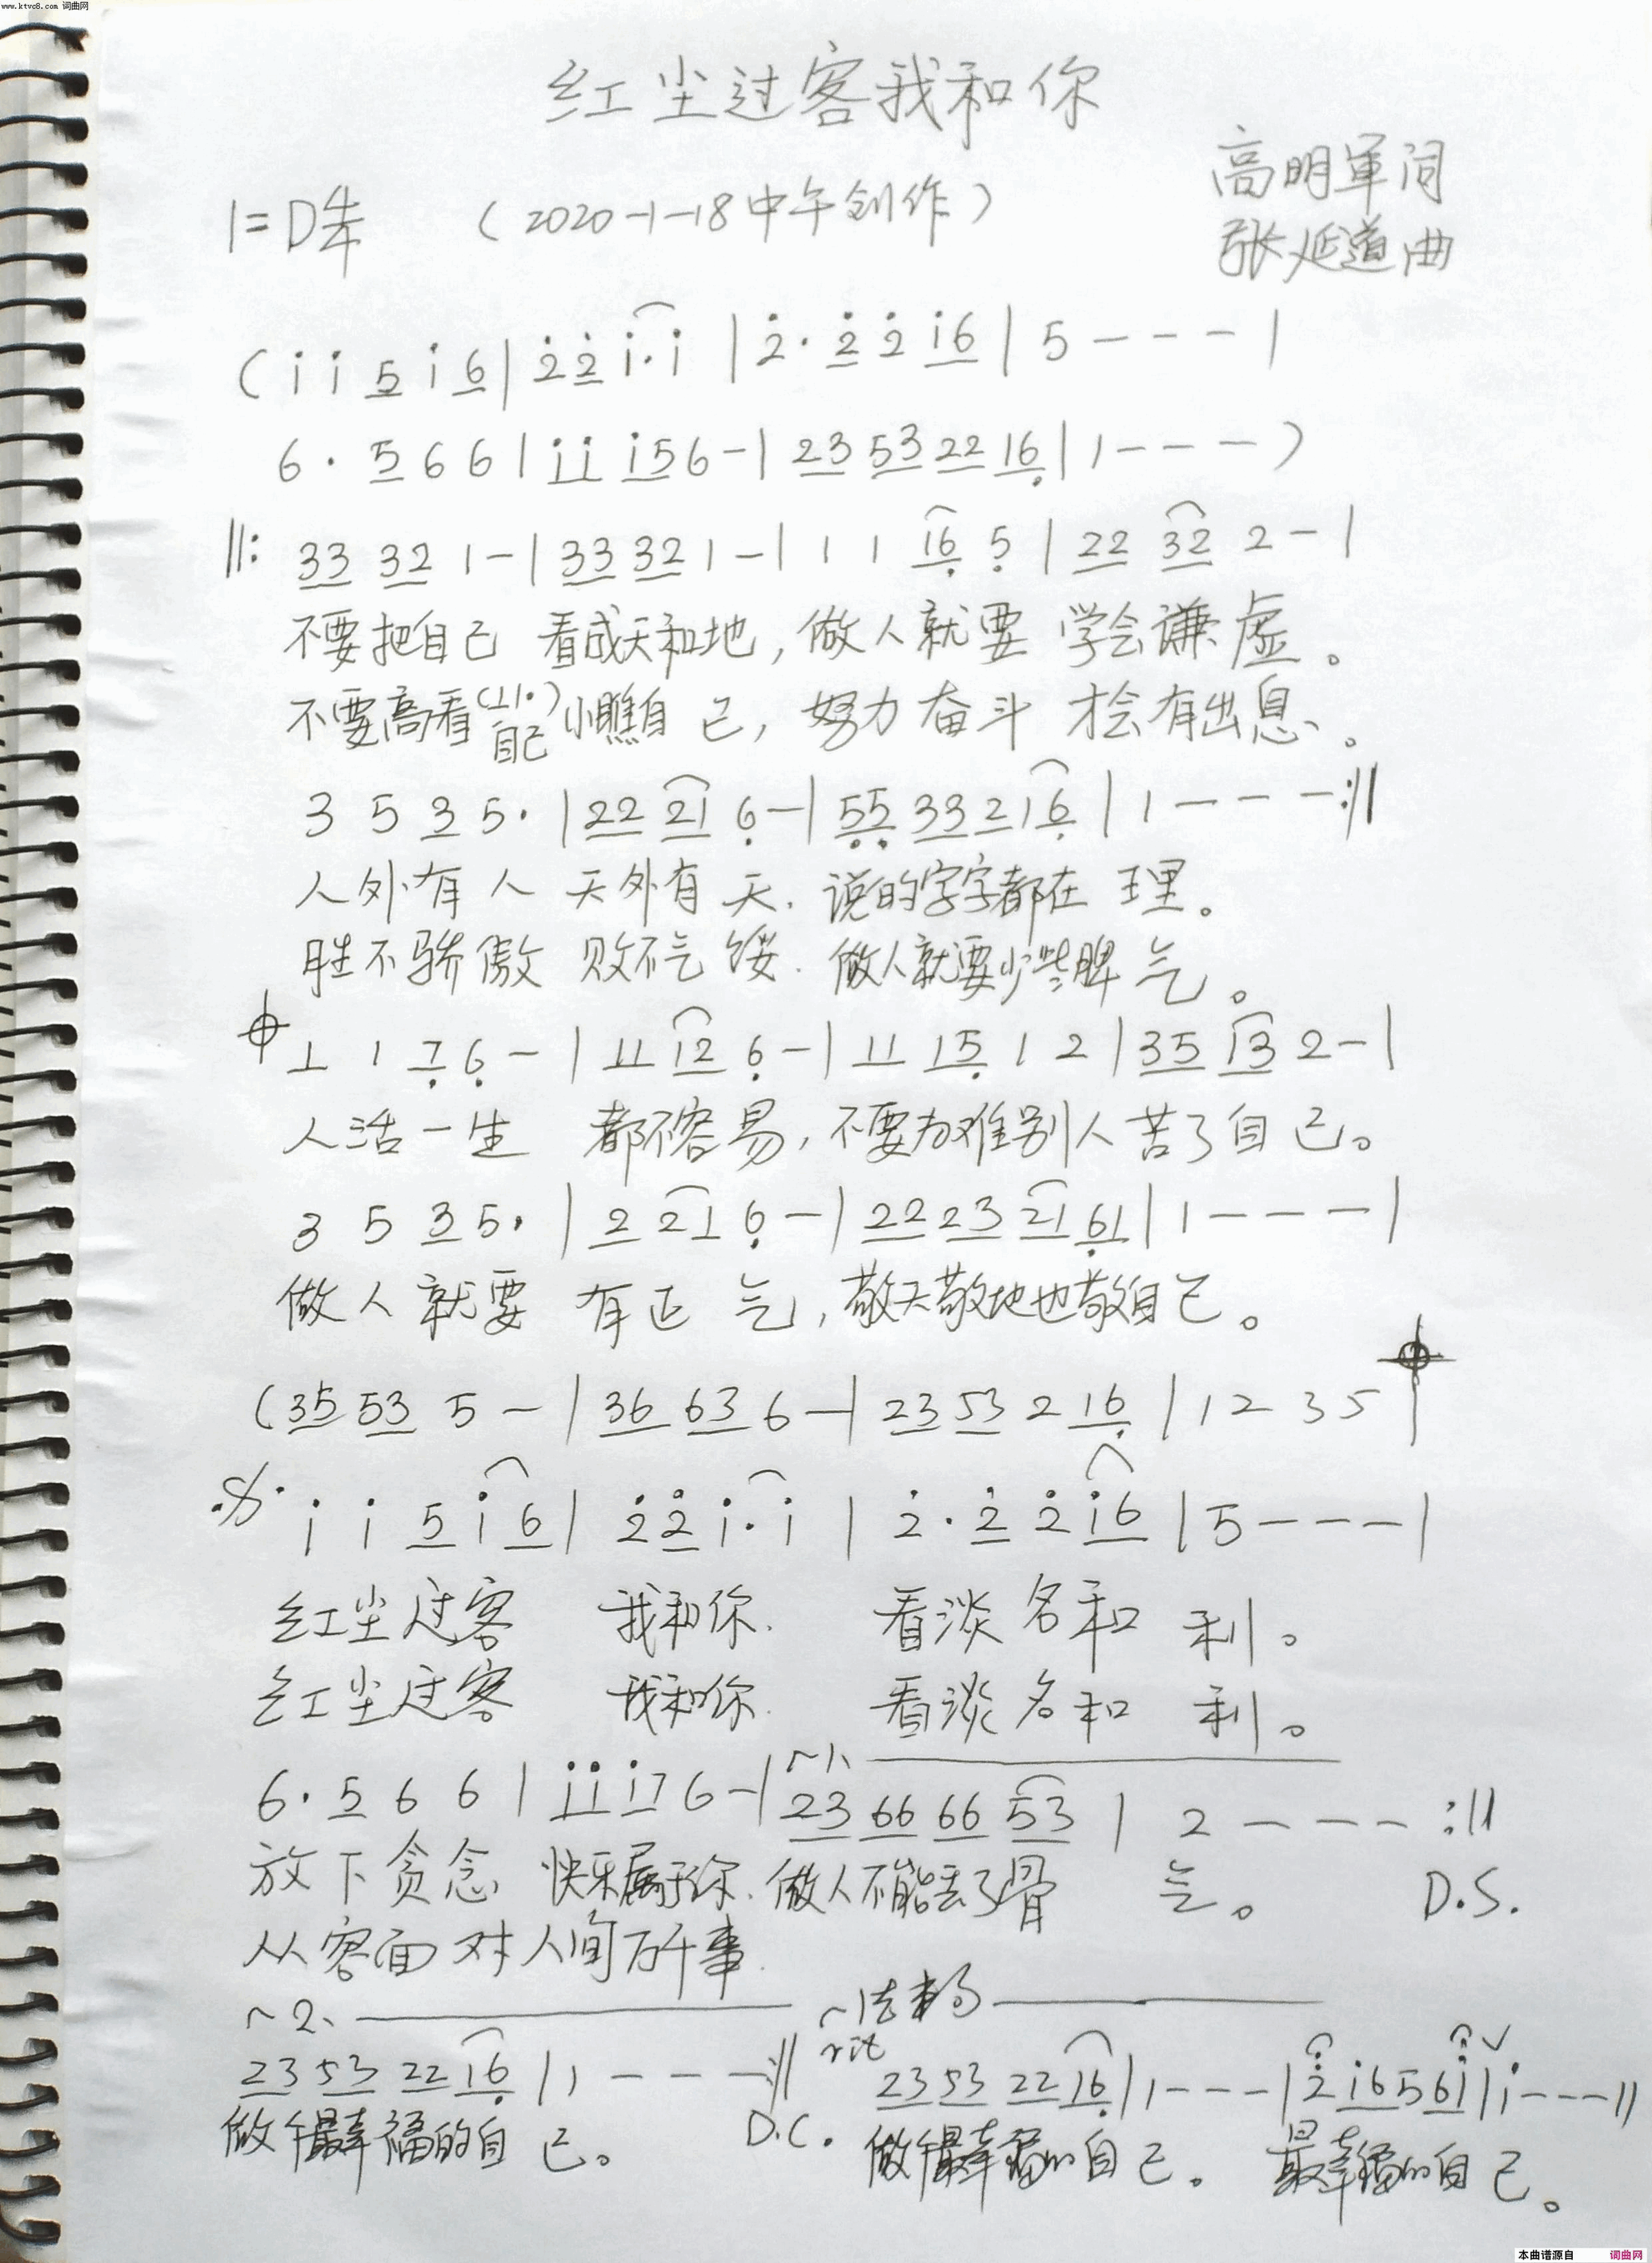 www.ktvc8.com 词曲网
红尘过客我和你
高明军词
1=D 4/4 (2020-1-18中午创作)
张延道曲
(i i 5 i 6 | 2 2 i· i | 2· 2 2 i6 | 5 - - - |
6· 5 6 6 | ii i5 6 - | 23 53 22 16 | 1 - - - )
||: 33 32 1 - | 33 32 1 - | 1 1 16 5 | 22 32 2 - |
不要把自己 看成天和地, 做人就要 学会谦虚。
不要高看(11·)自己 小瞧自己, 努力奋斗 才会有出息。
3 5 3 5· | 22 21 6 - | 55 33 2 1 6 | 1 - - - :||
人外有人 天外有天. 说的字字都在理。
胜不骄傲 败不气馁. 做人就要少些脾气。
1 1 7 6 - | 11 12 6 - | 11 15 1 2 | 35 13 2 - |
人活一生 都不容易, 不要为难别人苦了自己。
3 5 3 5· | 2 21 6 - | 22 23 21 61 | 1 - - - |
做人就要 有正气, 敬天敬地也敬自己。
(35 53 5 - | 36 63 6 - | 23 53 2 16 | 1 2 3 5 |
i i 5 i 6 | 2 2 i· i | 2· 2 2 i6 | 5 - - - |
红尘过客 我和你. 看淡名和利。
红尘过客 我和你. 看淡名和利。
1、
6· 5 6 6 | ii i7 6 - | 23 66 66 53 | 2 - - - :||
放下贪念 快乐属于你. 做人不能丢了骨气。 D.S.
从容面对人间万千事.
2、 结束句
rit
23 53 22 16 | 1 - - - :|| 23 53 22 16 | 1 - - - | 2 i6 5 6i | i - - - ||
做个最幸福的自己。 D.C. 做个最幸福的自己。 最幸福的自己。
本曲谱源自 词曲网